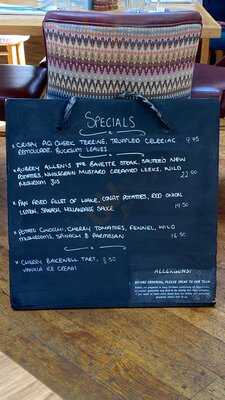 SPECIALS
* CRISPY PIG CHEEK TERRINE, TRUFFLED CELERIAC 9.95
REMOULADE, BUCKSUM LEAVES
* AUBREY ALLEN'S 8oz BAVETTE STEAK, SAUTÉED NEW
POTATOES, WHOLEGRAIN MUSTARD CREAMED LEEKS, WILD 22.95
MUSHROOM JUS
* PAN FRIED FILLET OF HAKE, CONFIT POTATOES, RED ONION
SPINACH, HOLLANDAISE SAUCE 19.50
* POTATO GNOCCHI, CHERRY TOMATOES, FENNEL, WILD
MUSHROOMS, SPINACH & PARMESAN 16.50
* CHERRY BAKEWELL TART, 8.50
VANILLA ICE CREAM
ALLERGENS!
BEFORE ORDERING, PLEASE SPEAK TO OUR TEAM